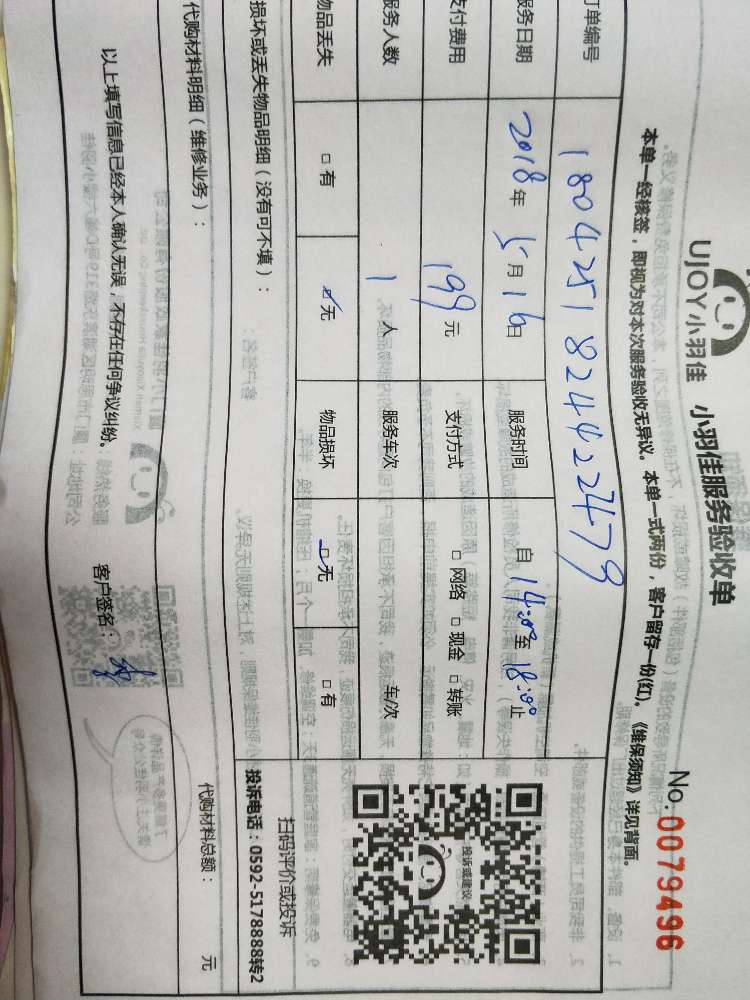 UJOY小羽佳 小羽佳服务验收单
No.0079496
本单一经核签，即视为对本次服务验收无异议。本单一式两份，客户留存一份(红)。《维保须知》详见背面。
订单编号 1804251824422479
服务日期 2018年5月16日 服务时间 自14:00至18:00止
支付费用 199元 支付方式 □网络 □现金 □转账
服务人数 1人 服务车次 车/次
物品丢失 □有 ☑无 物品损坏 ☑无 □有
投诉或建议
扫码评价或投诉
投诉电话：0592-5178888转2
损坏或丢失物品明细（没有可不填）：
代购材料明细（维修业务）：
代购材料总额： 元
以上填写信息已经本人确认无误，不存在任何争议纠纷。 客户签名：